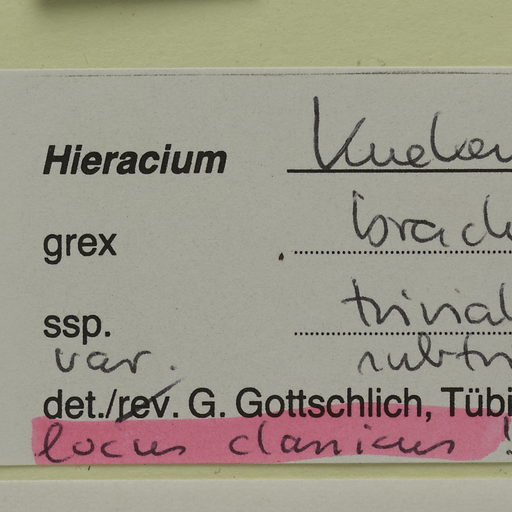 Hieracium
grex brach
ssp. trivial
var. subtri
det./rev. G. Gottschlich, Tübi
locus classicus !